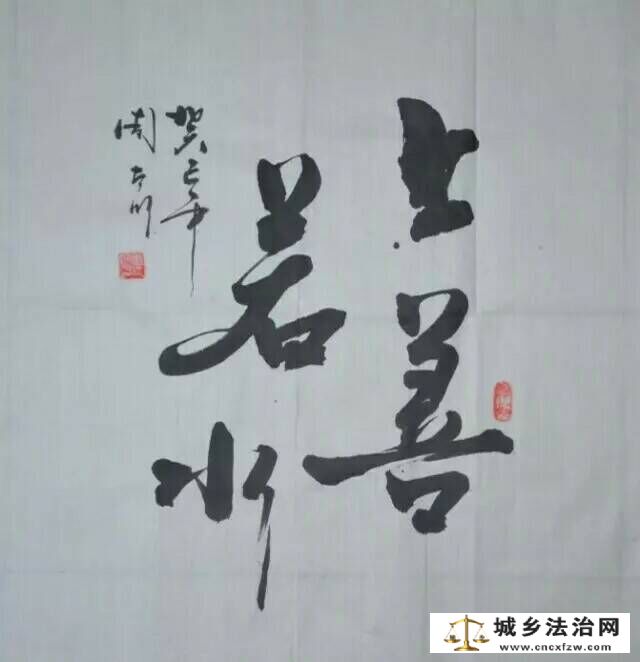 上善
若水
年
周
城乡法治网
www.cncxfzw.com